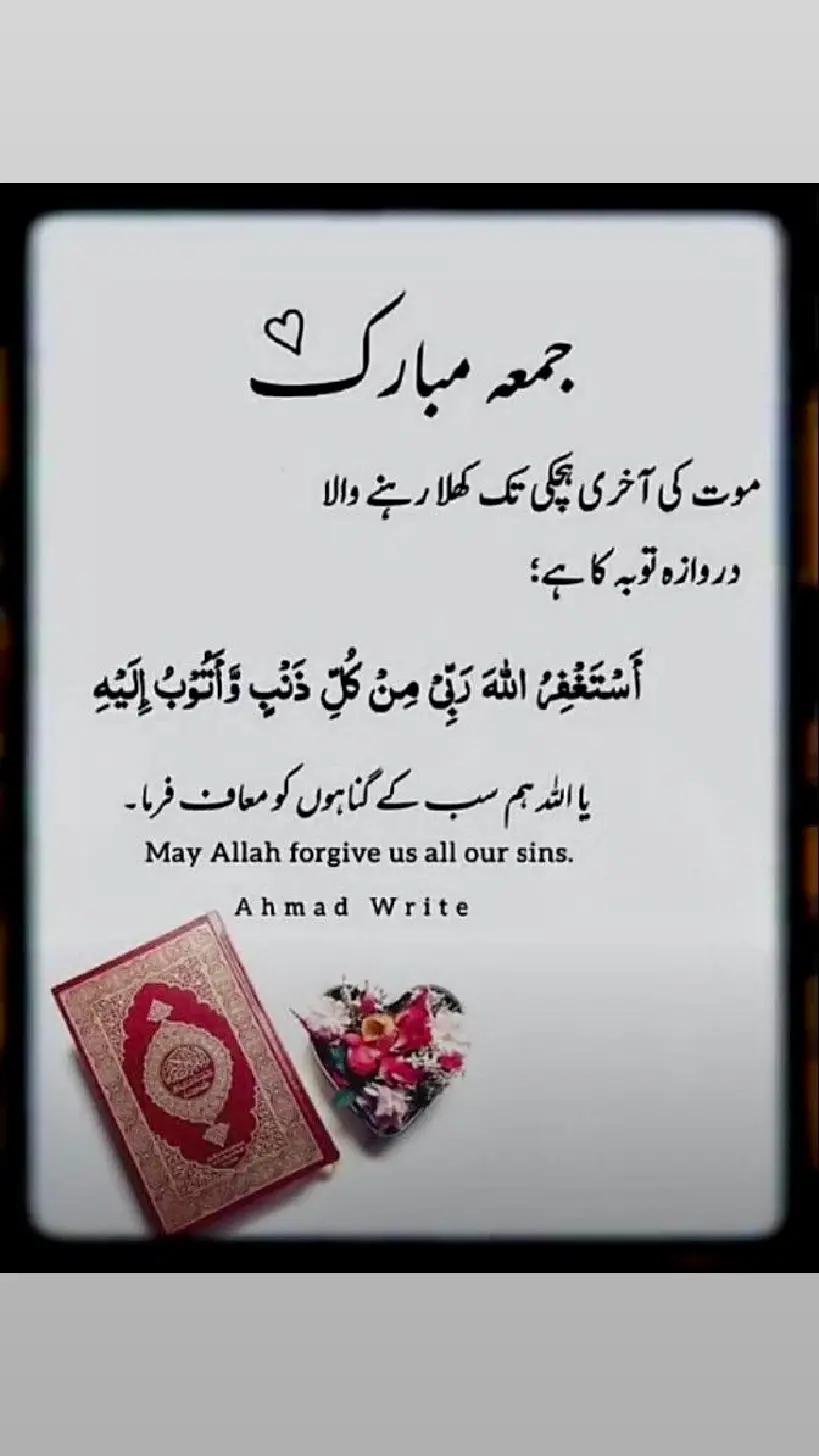 جمعہ مبارک
موت کی آخری ہچکی تک کھلا رہنے والا
دروازہ توبہ کا ہے؛
أَسْتَغْفِرُ اللهَ رَبِّیْ مِنْ کُلِّ ذَنْبٍ وَّأَتُوْبُ إِلَيْهِ
یا اللہ ہم سب کے گناہوں کو معاف فرما۔
May Allah forgive us all our sins.
Ahmad Write